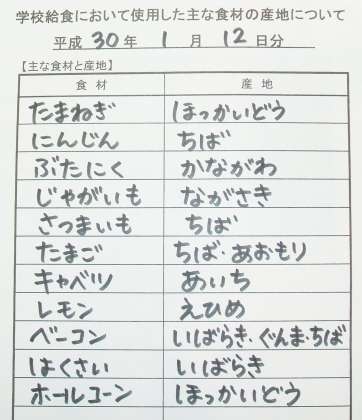 学校給食において使用した主な食材の産地について
平成 30 年 1 月 12 日分
【主な食材と産地】
食材 産地
たまねぎ ほっかいどう
にんじん ちば
ぶたにく かながわ
じゃがいも ながさき
さつまいも ちば
たまご ちば・あおもり
キャベツ あいち
レモン えひめ
ベーコン いばらき・ぐんま・ちば
はくさい いばらき
ホールコーン ほっかいどう